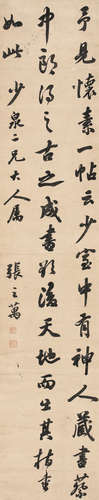 予見懷素一帖云少室中有神人藏書蔡
中郎得之古之成書欲後天地而出其持重
如此 少泉二兄大人屬 張之萬